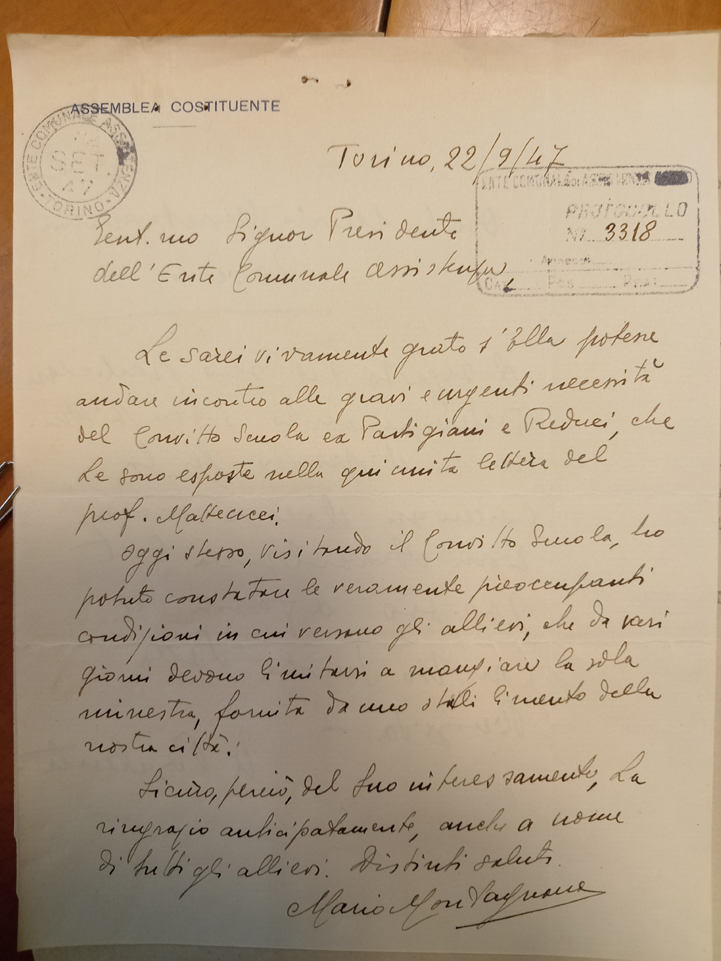 ASSEMBLEA COSTITUENTE
ENTE COMUNALE ASSISTENZA
SET
47
TORINO
Torino, 22/9/47
ENTE COMUNALE DI ASSISTENZA
PROTOCOLLO
N° 3318
Cat. Fas. Prat.
Gent.mo Signor Presidente
dell'Ente Comunale Assistenza
Le sarei vivamente grato s'Ella potesse
andare incontro alle gravi e urgenti necessità
del Convitto Scuola ex Partigiani e Reduci, che
Le sono esposte nella qui unita lettera del
prof. Matteucci.
Oggi stesso, visitando il Convitto Scuola, ho
potuto constatare le veramente preoccupanti
condizioni in cui versano gli allievi, che da vari
giorni devono limitarsi a mangiare la sola
minestra, fornita da uno stabilimento della
nostra città.
Sicuro, perciò, del Suo interessamento, La
ringrazio anticipatamente, anche a nome
di tutti gli allievi. Distinti saluti.
Mario Montagnana